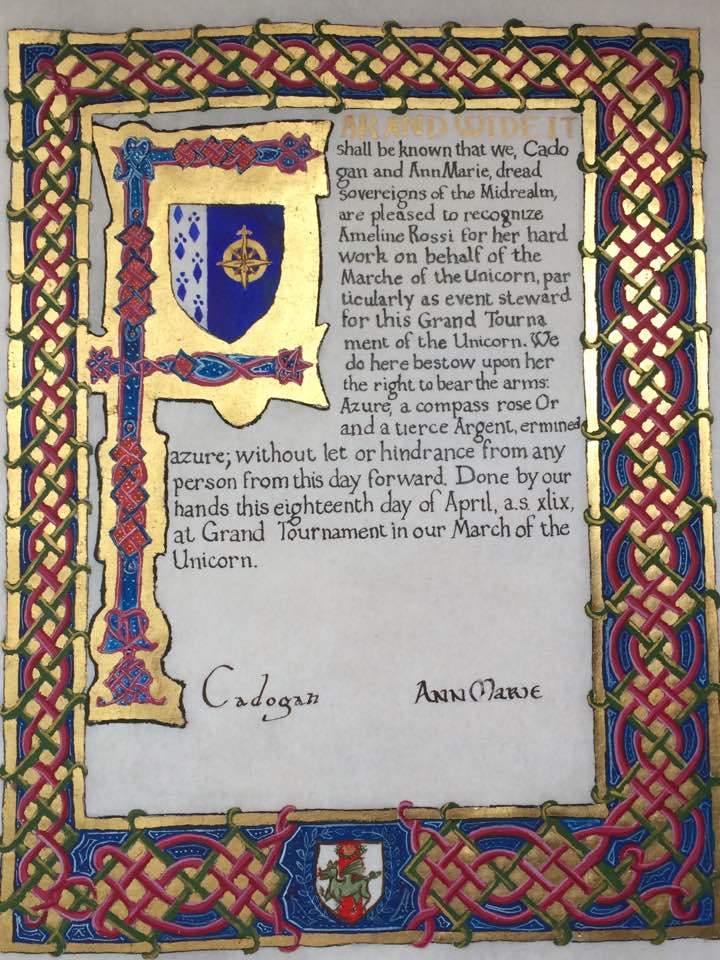 FAR AND WIDE IT
shall be known that we, Cado
gan and AnnMarie, dread
sovereigns of the Midrealm,
are pleased to recognize
Ameline Rossi for her hard
work on behalf of the
Marche of the Unicorn, par
ticularly as event steward
for this Grand Tourna
ment of the Unicorn. We
do here bestow upon her
the right to bear the arms:
Azure, a compass rose Or
and a tierce Argent, ermined
azure; without let or hindrance from any
person from this day forward. Done by our
hands this eighteenth day of April, a.s. xlix,
at Grand Tournament in our March of the
Unicorn.
Cadogan
AnnMarie